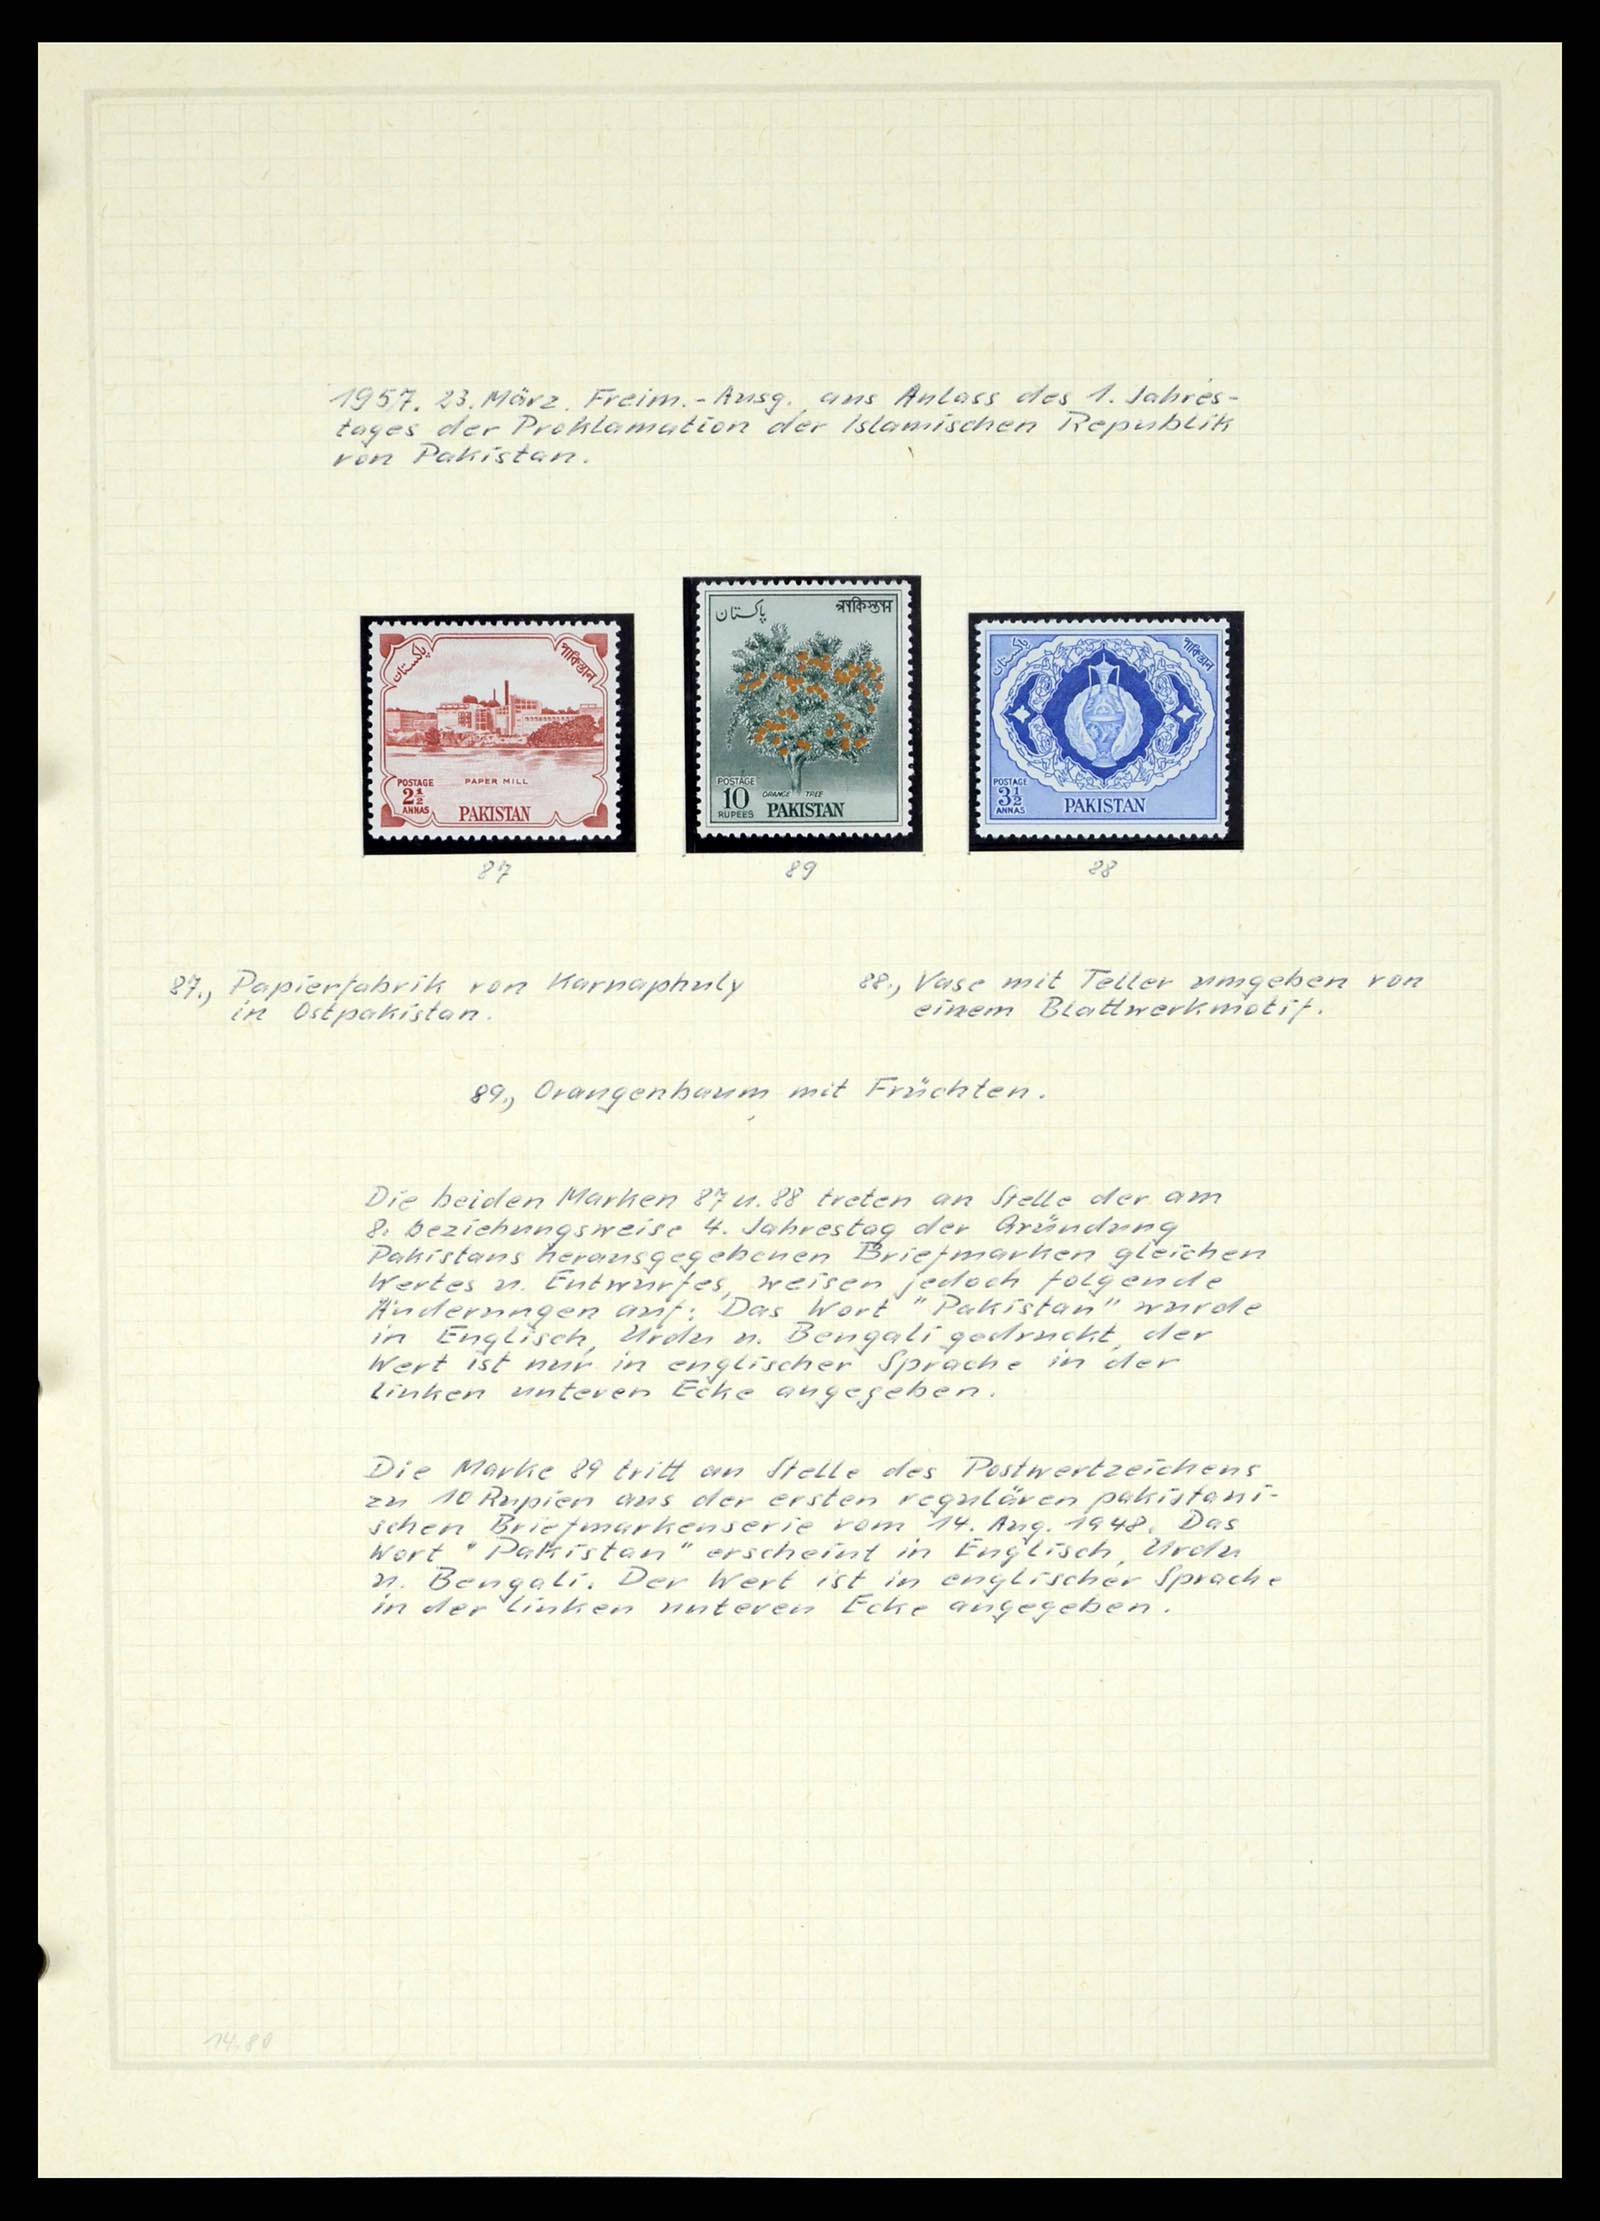 1957. 23. März. Freim.-Ausg. aus Anlass des 1. Jahres-
tages der Proklamation der Islamischen Republik
von Pakistan.
پاکستان
পাকিস্তান
POSTAGE
2½
ANNAS
PAPER MILL
PAKISTAN
پاکستان
পাকিস্তান
POSTAGE
10
RUPEES
ORANGE TREE
PAKISTAN
پاکستان
পাকিস্তান
POSTAGE
3½
ANNAS
PAKISTAN
87
89
88
87., Papierfabrik von Karnaphuly
in Ostpakistan.
88., Vase mit Teller umgeben von
einem Blattwerkmotif.
89., Orangenbaum mit Früchten.
Die beiden Marken 87 u. 88 treten an Stelle der am
8. beziehungsweise 4. Jahrestag der Gründung
Pakistans herausgegebenen Briefmarken gleichen
Wertes u. Entwurfes, weisen jedoch folgende
Änderungen auf: Das Wort "Pakistan" wurde
in Englisch, Urdu u. Bengali gedruckt, der
Wert ist nur in englischer Sprache in der
linken unteren Ecke angegeben.
Die Marke 89 tritt an Stelle des Postwertzeichens
zu 10 Rupien aus der ersten regulären pakistani-
schen Briefmarkenserie vom 14. Aug. 1948. Das
Wort "Pakistan" erscheint in Englisch, Urdu
u. Bengali. Der Wert ist in englischer Sprache
in der linken unteren Ecke angegeben.
14.80